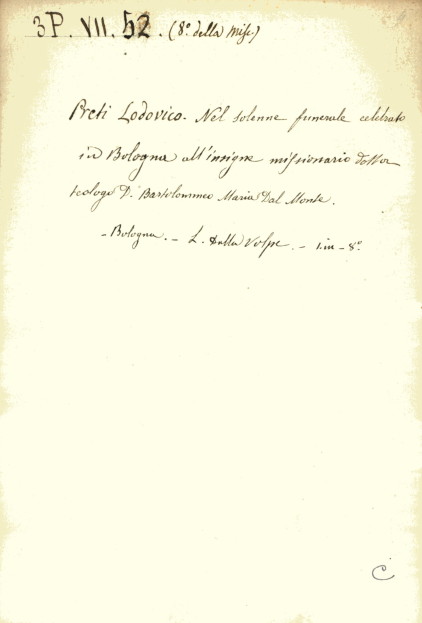 3P. VII. 52. (8.° della Misc)
Preti Lodovico. Nel solenne funerale celebrato
in Bologna all'insigne missionario dottor
teologo D. Bartolommeo Maria Dal Monte.
- Bologna. - L. Dalla Volpe. - 1. in - 8.°
C